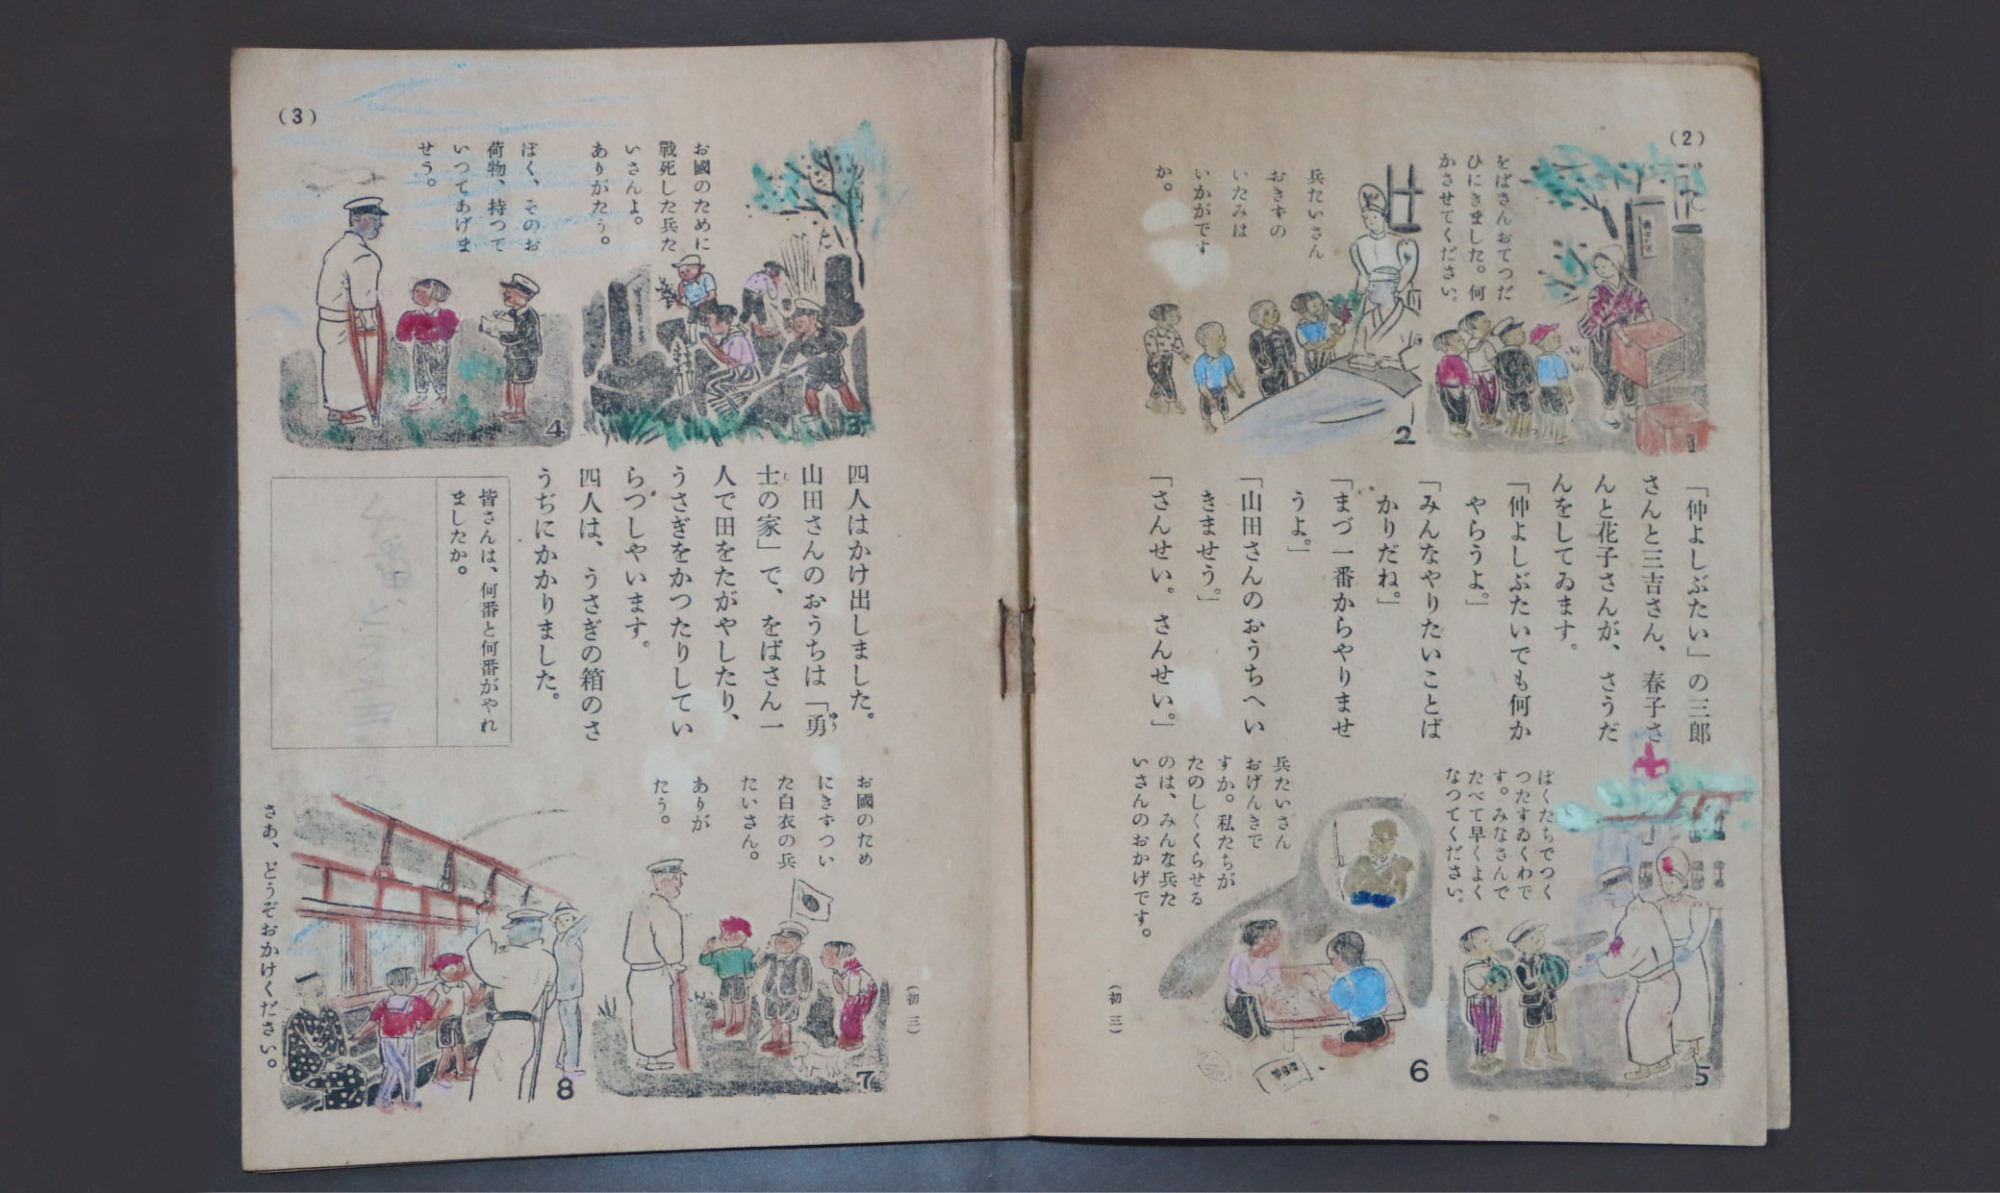 (2)
をばさんおてつだ
ひにきました。何
かさせてください。
兵たいさん
おきずの
いたみは
いかがです
か。
2
「仲よしぶたい」の三郎
さんと三吉さん、春子さ
んと花子さんが、さうだ
んをしてゐます。
「仲よしぶたいでも何か
やらうよ。」
「みんなやりたいことば
かりだね。」
「まづ一番からやりませ
うよ。」
「山田さんのおうちへい
きませう。」
「さんせい。さんせい。」
ぼくたちでつく
つたすゐくわで
す。みなさんで
たべて早くよく
なつてください。
5
兵たいさん
おげんきで
すか。私たちが
たのしくくらせる
のは、みんな兵た
いさんのおかげです。
6
(初三)
(3)
お國のために
戰死した兵た
いさんよ。
ありがたう。
3
ぼく、そのお
荷物、持つて
いつてあげま
せう。
4
四人はかけ出しました。
山田さんのおうちは「勇
ゆう
士の家」で、をばさん一
し
人で田をたがやしたり、
うさぎをかつたりしてい
らつしやいます。
四人は、うさぎの箱のさ
うぢにかかりました。
皆さんは、何番と何番がやれ
ましたか。
お國のため
にきずつい
た白衣の兵
たいさん。
ありが
たう。
7
さあ、どうぞおかけください。
8
(初三)